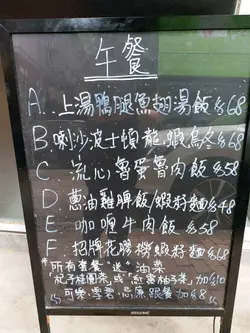 午餐
A. 上湯鴨腿魚翅湯飯 $68
B. 喇沙波士頓龍蝦烏冬 $68
C. 流心魯蛋魯肉飯 $58
D. 蔥油雞髀飯/蝦籽麵 $48
E. 咖喱牛肉飯 $58
F. 招牌花膠撈蝦籽麵 $68
*所有套餐"送"油菜
"杞子桂圓茶"或"紅棗柚子茶" 加$10
可樂、雪碧、忌廉跟餐 加$8